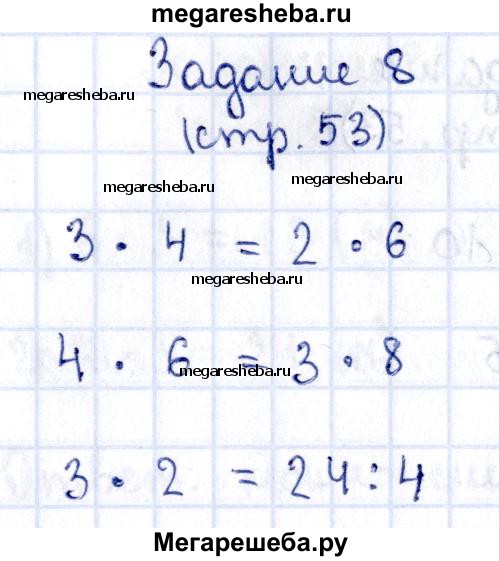 megaresheba.ru
Задание 8
megaresheba.ru
(стр. 53)
megaresheba.ru
megaresheba.ru
3 · 4 = 2 · 6
megaresheba.ru
4 · 6 = 3 · 8
megaresheba.ru
3 · 2 = 24 : 4
Мегарешеба.ру